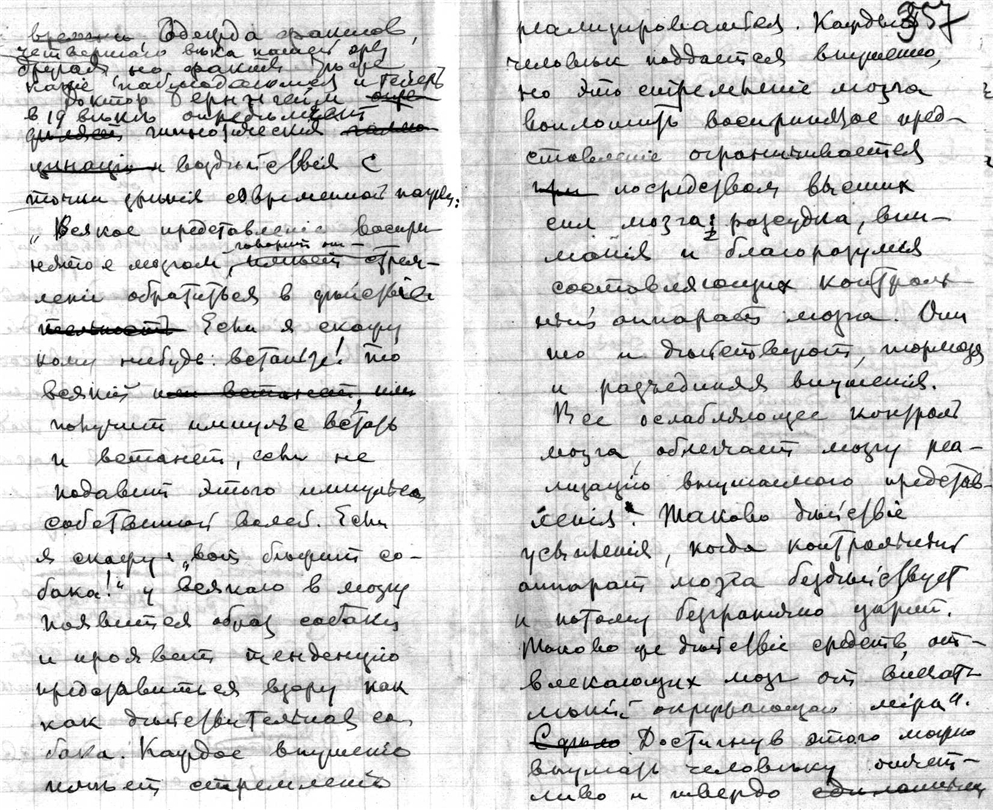 времени Одежда факиров,
четвертого века нашей эры
другая но факты
какие наблюдаются и теперь
Доктор Бернгейм
в 19 веке определяет
гипнотическия
и воздействия с
точки зрѣнія современной науки:
„Всякое представленіе воспри-
говорит он —
нятое мозгом, имѣет стрем-
леніе обратиться в дѣйствіе
тельность Если я скажу
кому нибудь: встаньте! то
всякій или встанет, или
получит импульс встать
и встанет, если не
подавит этого импульса
собственной волей. Если
я скажу: „вот бѣжит со-
бака!" у всякаго в мозгу
появится образ собаки
и проявит тенденцію
представиться взору как
как дѣйствительная со
бака. Каждое внушеніе
имѣет стремленіе
357
реализироваться. Каждый
человѣк поддается внушению,
но это стремленіе мозга
воплотить воспринятое пред-
ставленіе ограничивается
при посредством высших
сил мозга: разсудка, вни-
манія и благоразумія
составляющих контроль-
ный аппарат мозга. Они
то и дѣйствуют, тормозя
и разъединяя внушенія.
Все ослабляющее контроль
мозга облегчает мозгу реа-
лизацію внушаемого представ-
ленія. Таково дѣйствіе
усыпленія, когда контрольный
аппарат мозга бездѣйствует
и потому безгранично царит.
Таково же дѣйствіе средств, от-
влекающих мозг от впечат-
лѣній окружающаго міра".
Достигнув этого можно
внушать человѣку отчет-
ливо и твердо